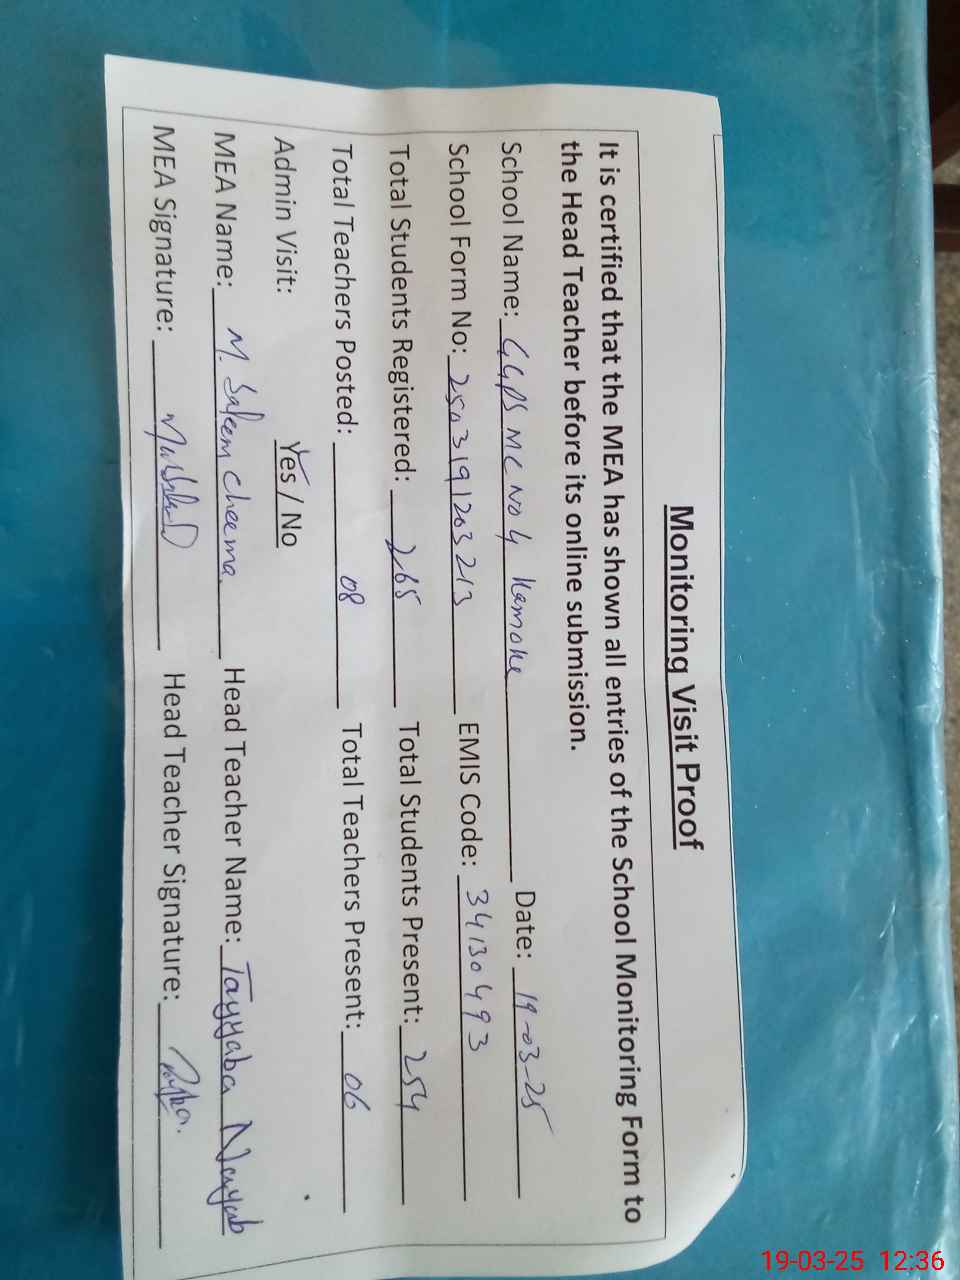 Monitoring Visit Proof
It is certified that the MEA has shown all entries of the School Monitoring Form to
the Head Teacher before its online submission.
School Name: GGPS MC NO 4 Kamoke Date: 19-03-25
School Form No: 2503191203213 EMIS Code: 34130493
Total Students Registered: 265 Total Students Present: 254
Total Teachers Posted: 08 Total Teachers Present: 06
Admin Visit: Yes / No
MEA Name: M. Saleem Cheema Head Teacher Name: Tayyaba Nayab
MEA Signature: Head Teacher Signature:
19-03-25 12:36